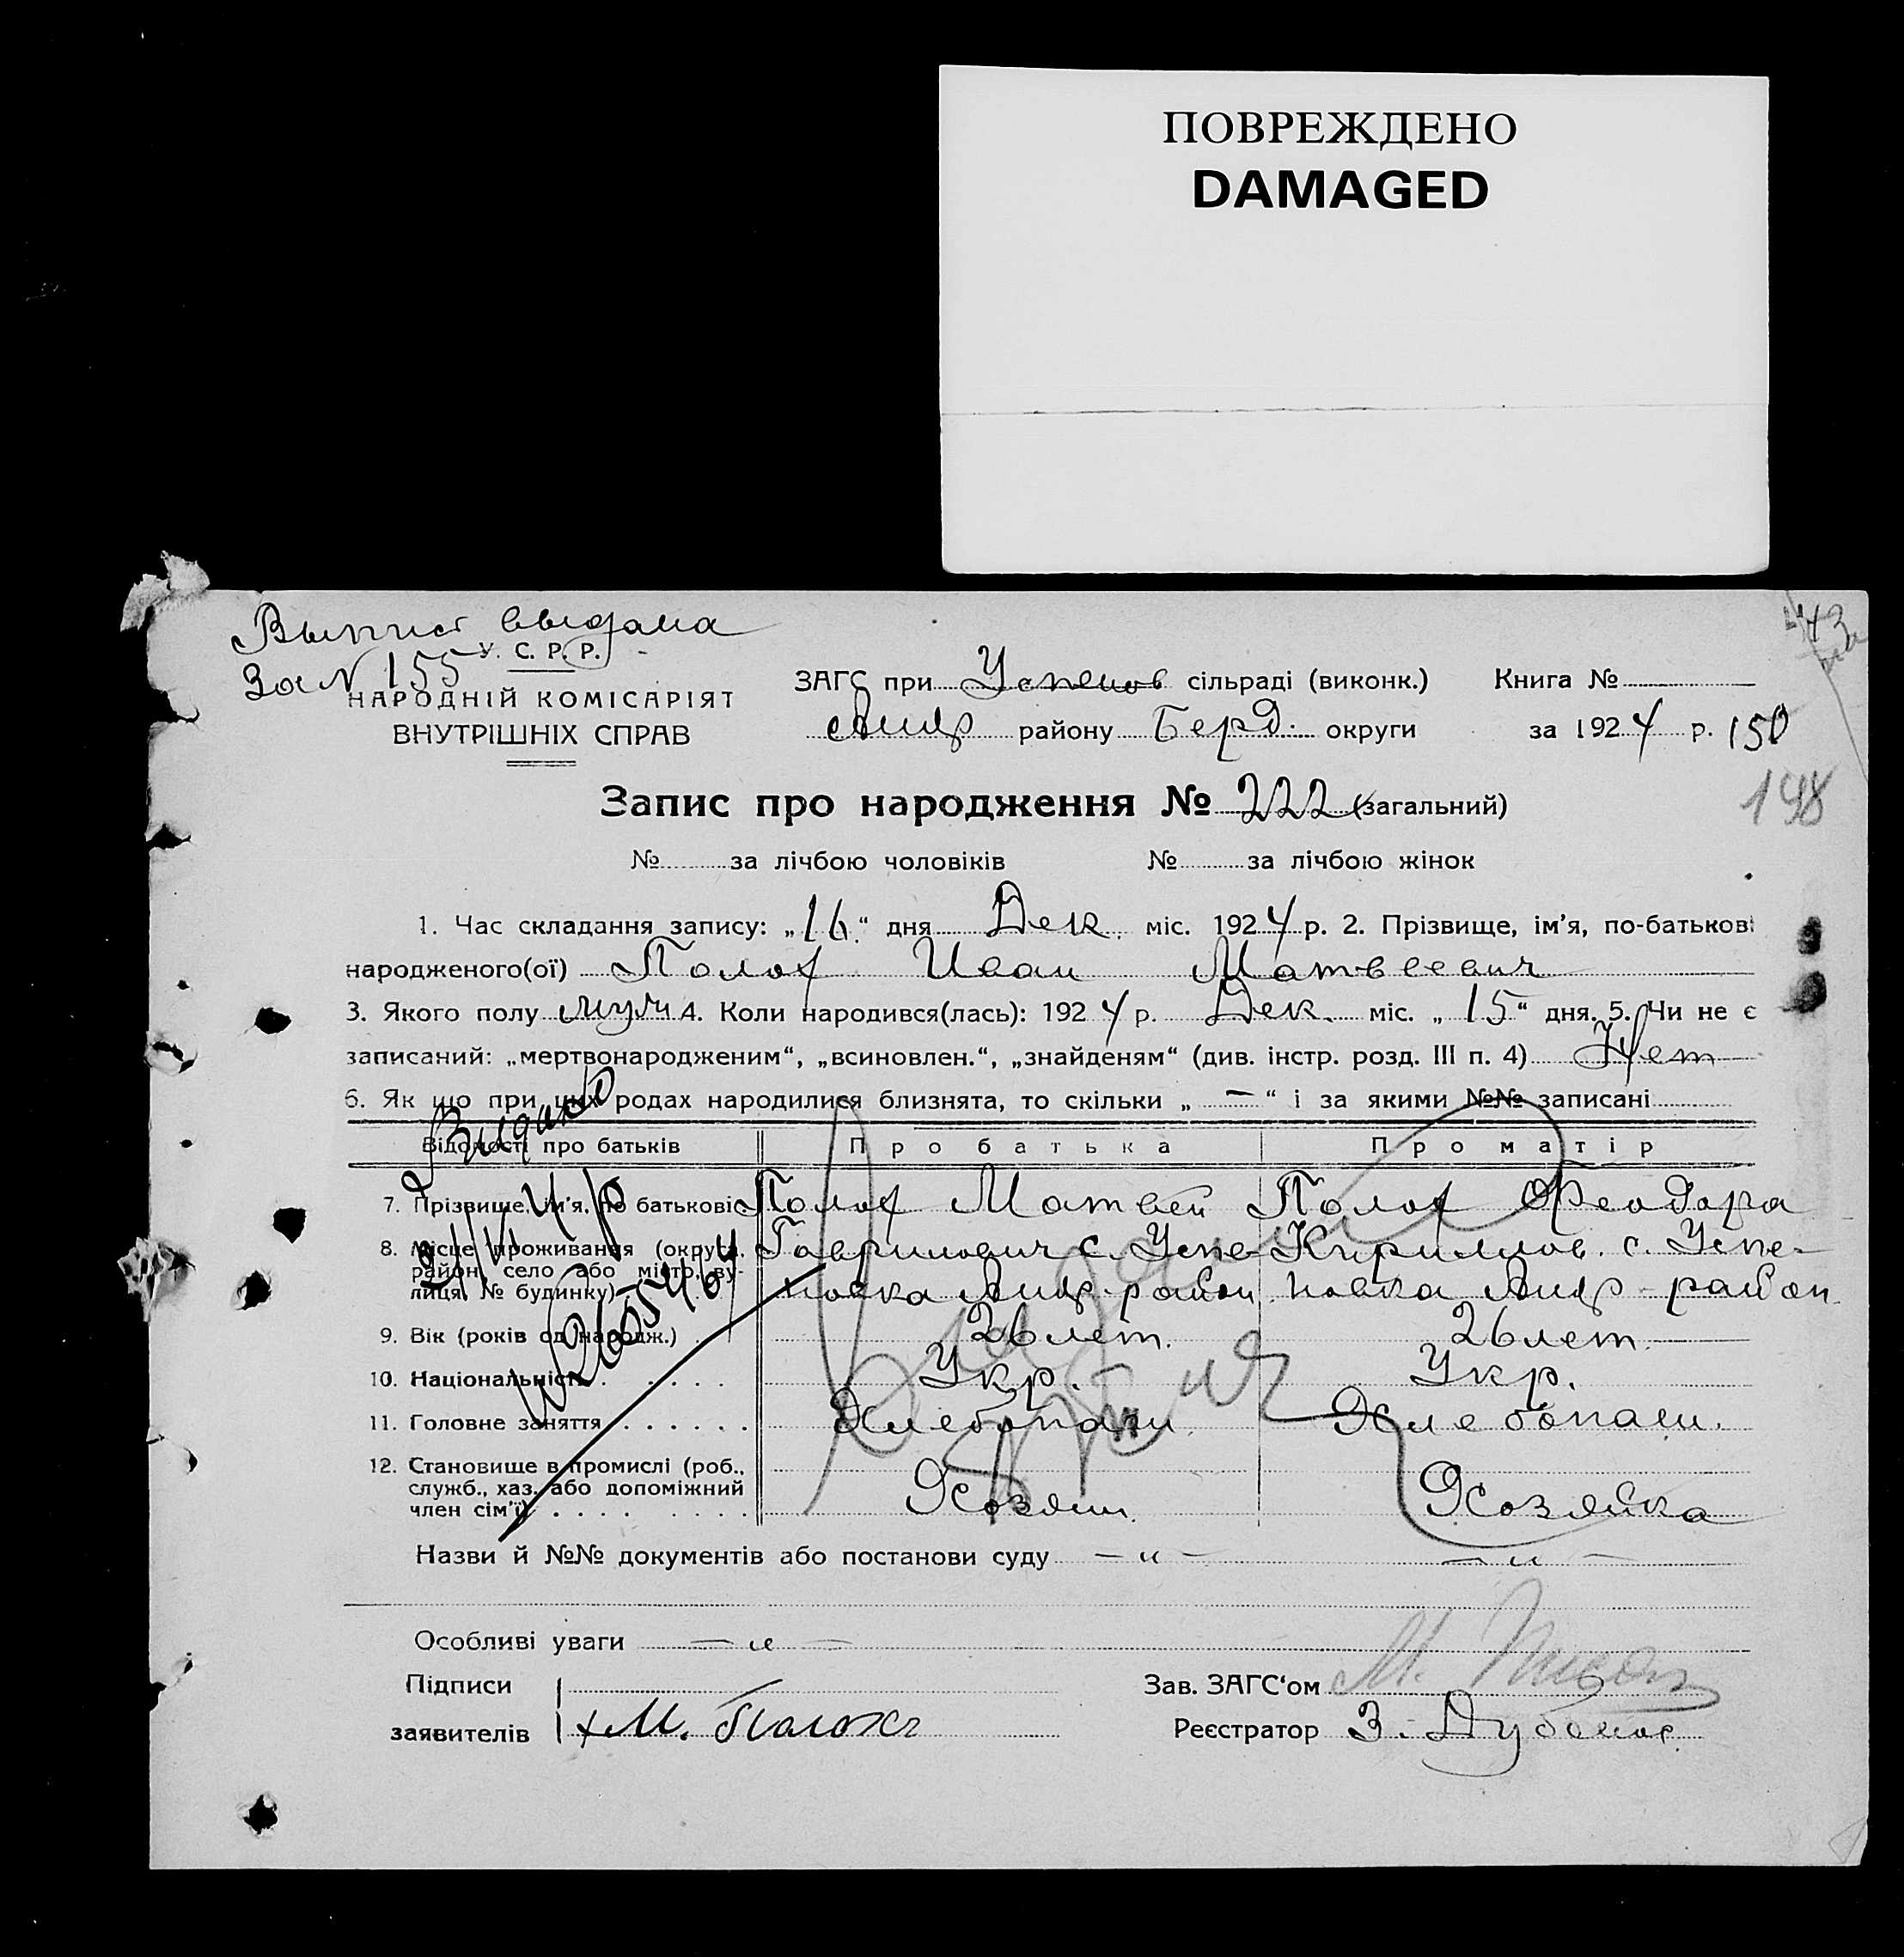 ПОВРЕЖДЕНО
DAMAGED
Выпись выдана
За № 155
У. С. Р. Р.
НАРОДНІЙ КОМІСАРІЯТ
ВНУТРІШНІХ СПРАВ
ЗАГС при Успенов сільраді (виконк.) Книга №
району Берд. округи за 1924 р. 150
198
Запис про народження № 222 (загальний)
№ за лічбою чоловіків № за лічбою жінок
1. Час складання запису: „16“ дня Дек. міс. 1924 р. 2. Прізвище, ім'я, по-батькові
народженого(ої) Полож Иван Матвеевич
3. Якого полу муж 4. Коли народився(лась): 1924 р. Дек. міс. „15“ дня. 5. Чи не є
записаний: „мертвонародженим“, „всиновлен.“, „знайденям“ (див. інстр. розд. III п. 4) Нет
6. Як що при цих родах народилися близнята, то скільки „ — “ і за якими №№ записані
Відомості про батьків Про батька Про матір
7. Прізвище, ім'я, по батькові Полож Матвей Полож Феодора
8. Місце проживання (округа, Гаврилович с. Успе- Кириллов. с. Успе-
район, село або місто, ву-
лиця, № будинку) новка район новка район
9. Вік (років од народж.) 26 лет. 26 лет.
10. Національність Укр. Укр.
11. Головне заняття Хлебопаш. Хлебопаш.
12. Становище в промислі (роб.,
служб., хаз. або допоміжний
член сім'ї) Хозяин. Хозяйка
Назви й №№ документів або постанови суду — „ — — „ —
Особливі уваги — „ —
Підписи Зав. ЗАГС‘ом
заявителів М. Полож Реєстратор З.